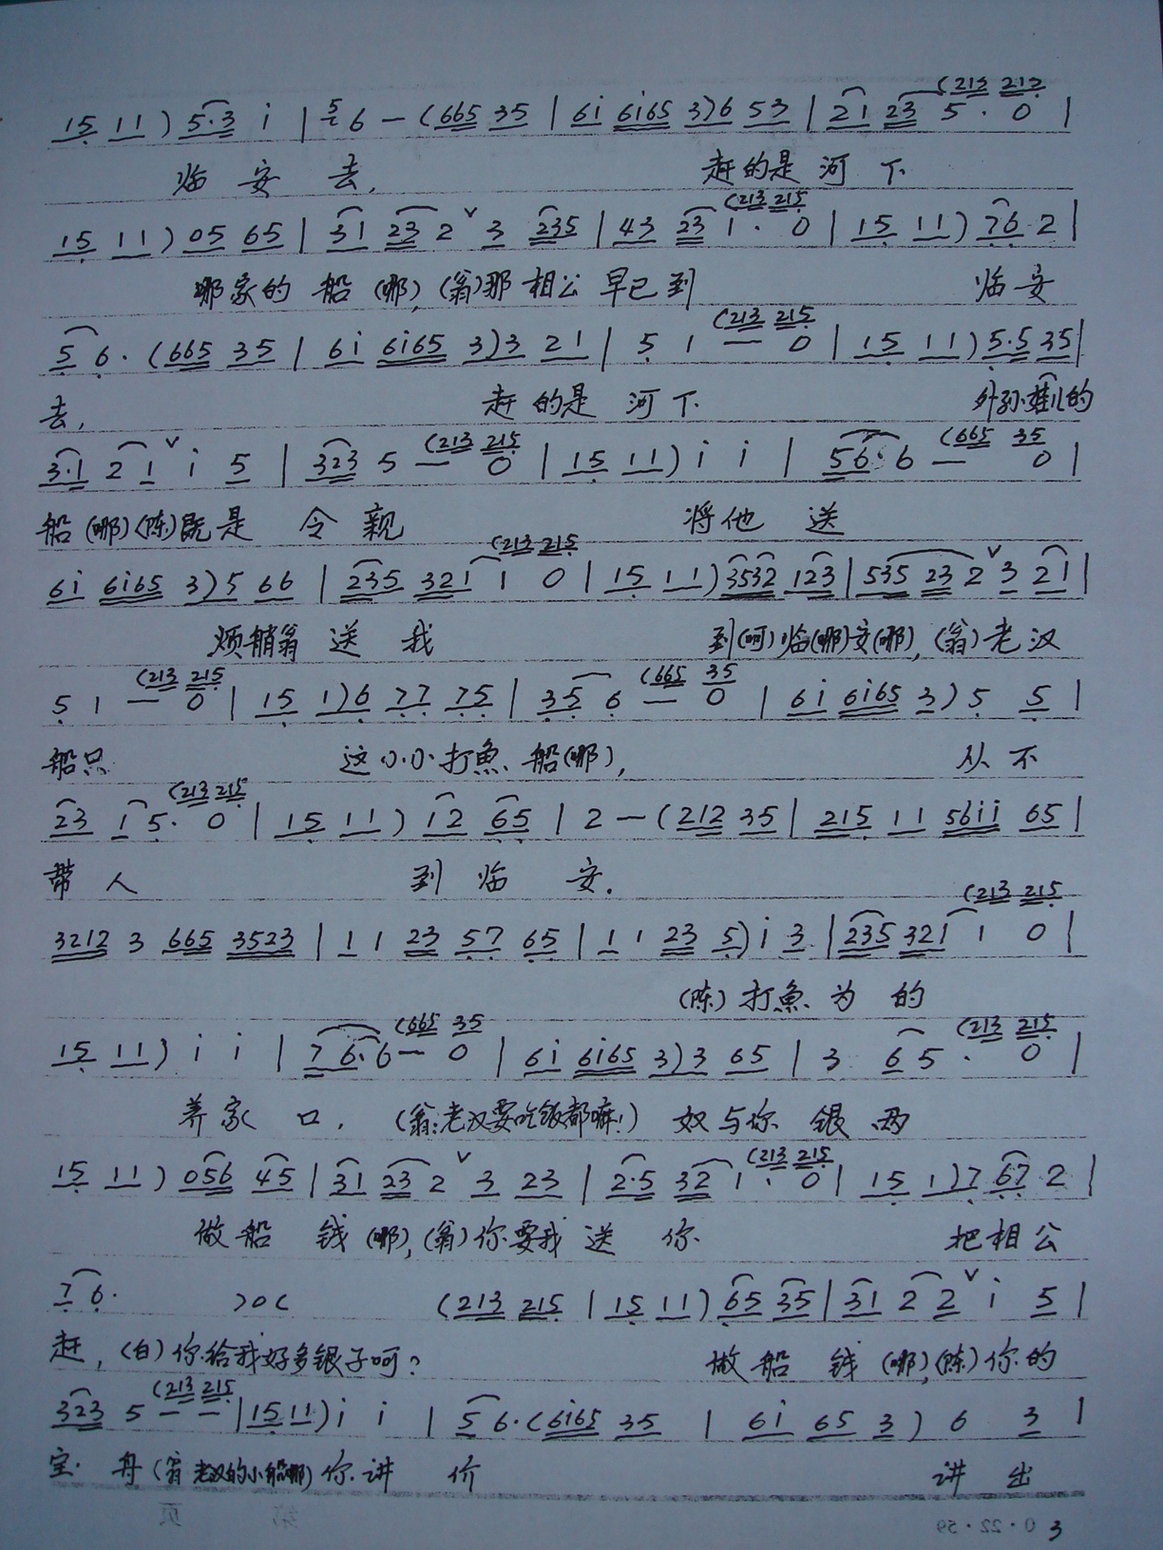 15 11 ) 5·3 i | 5 6 — ( 665 35 | 6i 6i65 3 ) 6 53 | 21 23 5 · ( 213 215 0 |
临 安 去, 赶的是 河 下
15 11 ) 05 65 | 31 23 2 ˅ 3 235 | 43 23 1 · ( 213 215 0 | 15 11 ) 76 2 |
哪家的 船 (哪), (翁)那 相公 早已到 临安
5 6 · ( 665 35 | 6i 6i65 3 ) 3 21 | 5 1 — ( 213 215 0 | 15 11 ) 5·5 35 |
去, 赶 的是 河 下 外孙 的
3·1 2 1 ˅ i 5 | 323 5 — ( 213 215 0 | 15 11 ) i i | 56· 6 — ( 665 35 0 |
船 (哪) (陈)既是 令 亲 将他 送
6i 6i65 3 ) 5 66 | 235 321 1 ( 213 215 0 | 15 11 ) 3532 123 | 535 23 2 ˅ 3 21 |
烦艄翁 送 我 到(呵)临(哪)安(哪), (翁)老汉
5 1 — ( 213 215 0 | 15 1 ) 6 77 75 | 35 6 — ( 665 35 0 | 6i 6i65 3 ) 5 5 |
船只 这小小打魚 船(哪), 从 不
23 1 5 · ( 213 215 0 | 15 11 ) 12 65 | 2 — ( 212 35 | 215 11 56ii 65 |
带 人 到 临 安.
3212 3 665 3523 | 1 1 23 57 65 | 1 1 23 5 ) i 3 | 235 321 1 ( 213 215 0 |
(陈) 打魚 为 的
15 11 ) i i | 7 6· 6 — ( 665 35 0 | 6i 6i65 3 ) 3 65 | 3 65 · ( 213 215 0 |
养家 口, (翁:老汉要吃饭都嘛!) 奴与你 银 两
15 11 ) 056 45 | 31 23 2 ˅ 3 23 | 2·5 32 1 · ( 213 215 0 | 15 1 ) 7 67 2 |
做船 钱 (哪), (翁)你要我 送 你 把相公
7 6 · >0< ( 213 215 | 15 11 ) 65 35 | 31 2 2 ˅ i 5 |
赶, (白)你给我好多银子呵? 做 船 钱 (哪), (陈)你的
323 5 — ( 213 215 — | 15 11 ) i i | 5 6 · ( 6i65 35 | 6i 65 3 ) 6 3 |
宝 舟 (翁 老汉的小船哪) 你讲 价 讲 出
3